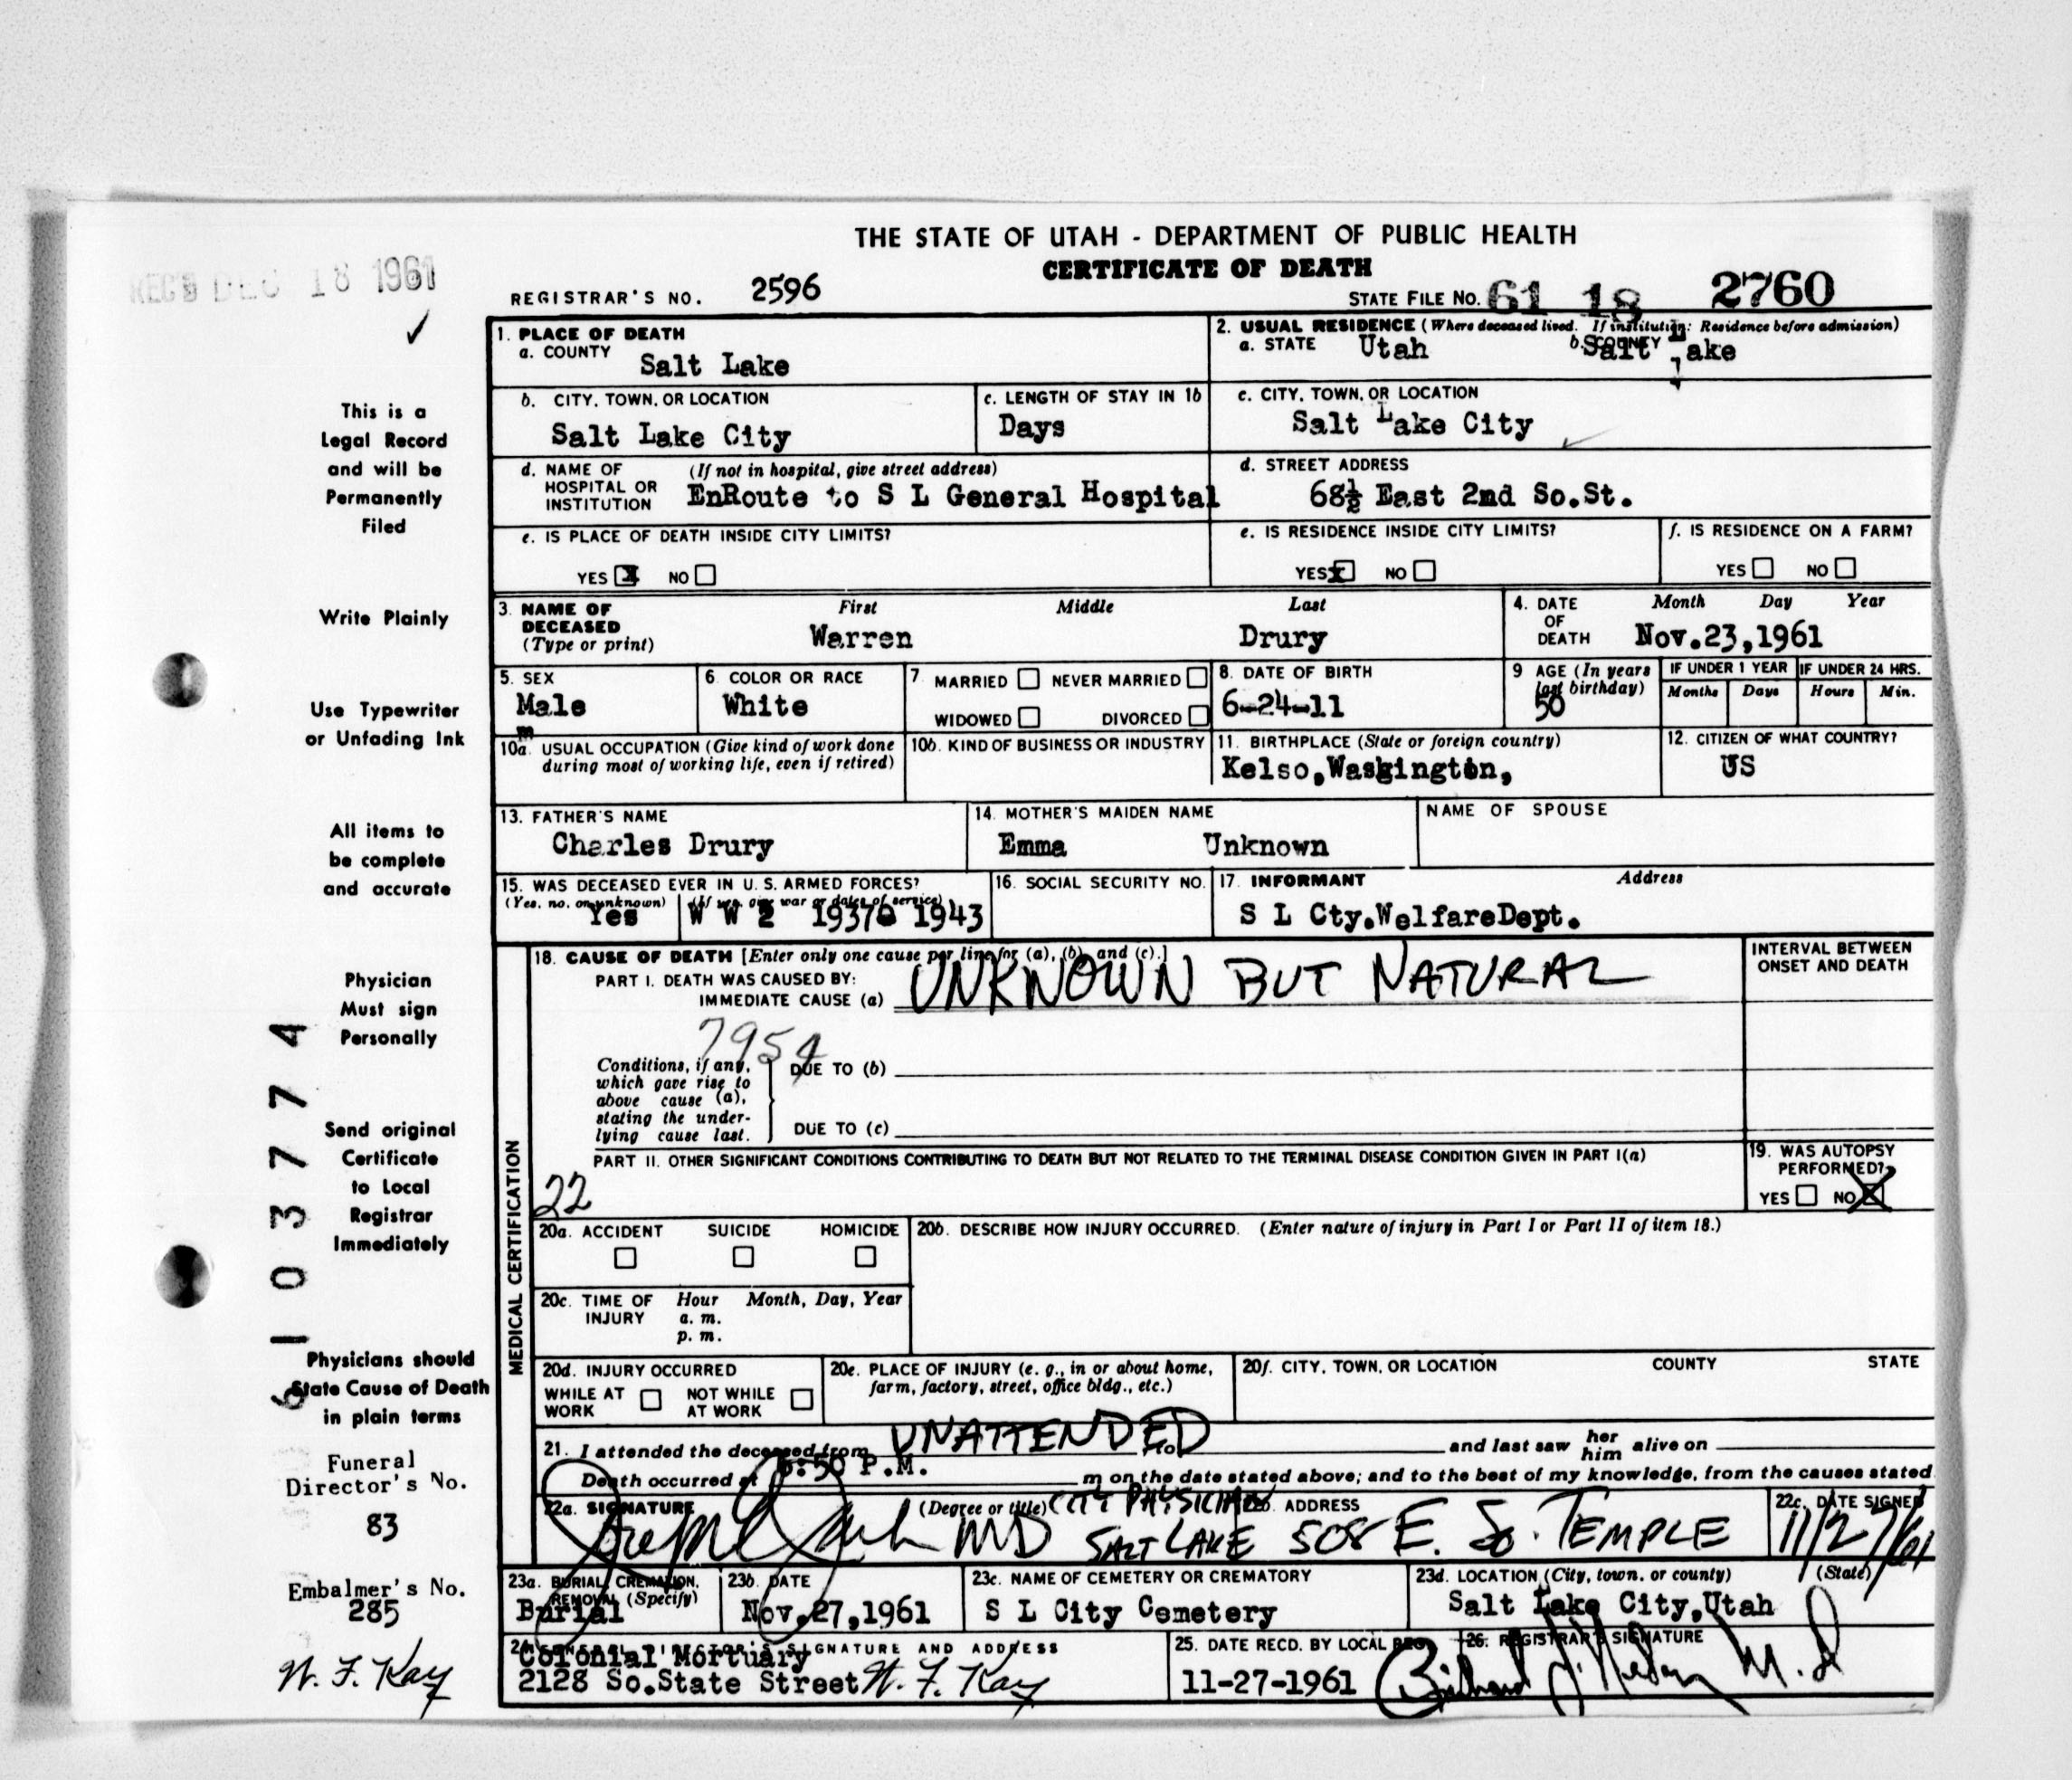 REC'D DEC 18 1961
THE STATE OF UTAH - DEPARTMENT OF PUBLIC HEALTH
CERTIFICATE OF DEATH
REGISTRAR'S NO. 2596
STATE FILE NO. 61 18 2760
1. PLACE OF DEATH
a. COUNTY Salt Lake
2. USUAL RESIDENCE (Where deceased lived. If institution: Residence before admission)
a. STATE Utah b. COUNTY Salt Lake
b. CITY, TOWN, OR LOCATION
Salt Lake City
c. LENGTH OF STAY IN 1b
Days
c. CITY, TOWN, OR LOCATION
Salt Lake City
d. NAME OF HOSPITAL OR INSTITUTION (If not in hospital, give street address)
EnRoute to S L General Hospital
d. STREET ADDRESS
68½ East 2nd So.St.
e. IS PLACE OF DEATH INSIDE CITY LIMITS?
YES X NO
e. IS RESIDENCE INSIDE CITY LIMITS?
YES X NO
f. IS RESIDENCE ON A FARM?
YES NO
3. NAME OF DECEASED (Type or print)
First Middle Last
Warren Drury
4. DATE OF DEATH Month Day Year
Nov.23,1961
5. SEX
Male
m
6. COLOR OR RACE
White
7. MARRIED NEVER MARRIED
WIDOWED DIVORCED
8. DATE OF BIRTH
6-24-11
9 AGE (In years last birthday)
50
IF UNDER 1 YEAR IF UNDER 24 HRS.
Months Days Hours Min.
10a. USUAL OCCUPATION (Give kind of work done during most of working life, even if retired)
10b. KIND OF BUSINESS OR INDUSTRY
11. BIRTHPLACE (State or foreign country)
Kelso,Washington,
12. CITIZEN OF WHAT COUNTRY?
US
13. FATHER'S NAME
Charles Drury
14. MOTHER'S MAIDEN NAME
Emma Unknown
NAME OF SPOUSE
15. WAS DECEASED EVER IN U. S. ARMED FORCES?
(Yes, no, or unknown) (If yes, give war or dates of service)
Yes W W 2 1937 1943
16. SOCIAL SECURITY NO.
17. INFORMANT Address
S L Cty.WelfareDept.
MEDICAL CERTIFICATION
18. CAUSE OF DEATH [Enter only one cause per line for (a), (b), and (c).]
PART I. DEATH WAS CAUSED BY:
IMMEDIATE CAUSE (a) UNKNOWN BUT NATURAL
INTERVAL BETWEEN ONSET AND DEATH
795
Conditions, if any, which gave rise to above cause (a), stating the underlying cause last.
DUE TO (b)
DUE TO (c)
PART II. OTHER SIGNIFICANT CONDITIONS CONTRIBUTING TO DEATH BUT NOT RELATED TO THE TERMINAL DISEASE CONDITION GIVEN IN PART I(a)
22
19. WAS AUTOPSY PERFORMED?
YES NO X
20a. ACCIDENT SUICIDE HOMICIDE
20b. DESCRIBE HOW INJURY OCCURRED. (Enter nature of injury in Part I or Part II of item 18.)
20c. TIME OF INJURY Hour Month, Day, Year
a. m.
p. m.
20d. INJURY OCCURRED
WHILE AT WORK NOT WHILE AT WORK
20e. PLACE OF INJURY (e. g., in or about home, farm, factory, street, office bldg., etc.)
20f. CITY, TOWN, OR LOCATION COUNTY STATE
21. I attended the deceased from UNATTENDED to and last saw her him alive on
Death occurred at :50 P.M. m on the date stated above; and to the best of my knowledge, from the causes stated
22a. SIGNATURE (Degree or title) CITY PHYSICIAN
MD SALT LAKE
22b. ADDRESS
508 E. So. TEMPLE
22c. DATE SIGNED
11/27/61
23a. BURIAL, CREMATION, REMOVAL (Specify)
Burial
23b. DATE
Nov.27,1961
23c. NAME OF CEMETERY OR CREMATORY
S L City Cemetery
23d. LOCATION (City, town, or county) (State)
Salt Lake City,Utah
24. FUNERAL DIRECTOR'S SIGNATURE AND ADDRESS
Colonial Mortuary
2128 So.State Street W. F. Kay
25. DATE RECD. BY LOCAL REG.
11-27-1961
26. REGISTRAR'S SIGNATURE
M.D
This is a
Legal Record
and will be
Permanently
Filed
Write Plainly
Use Typewriter
or Unfading Ink
All items to
be complete
and accurate
Physician
Must sign
Personally
Send original
Certificate
to Local
Registrar
Immediately
Physicians should
State Cause of Death
in plain terms
61037774
Funeral
Director's No.
83
Embalmer's No.
285
W. F. Kay